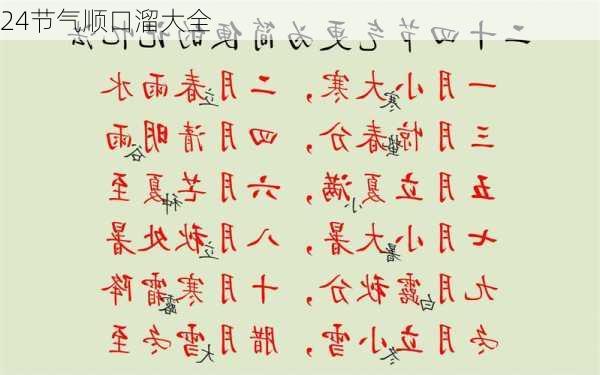 24节气顺口溜大全
二十四节气更为简便的记忆法
一月小寒大寒，二月立春雨水
三月惊蛰春分，四月清明谷雨
五月立夏小满，六月芒种夏至
七月小暑大暑，八月立秋处暑
九月白露秋分，十月寒露霜降
冬月立冬小雪，腊月大雪冬至